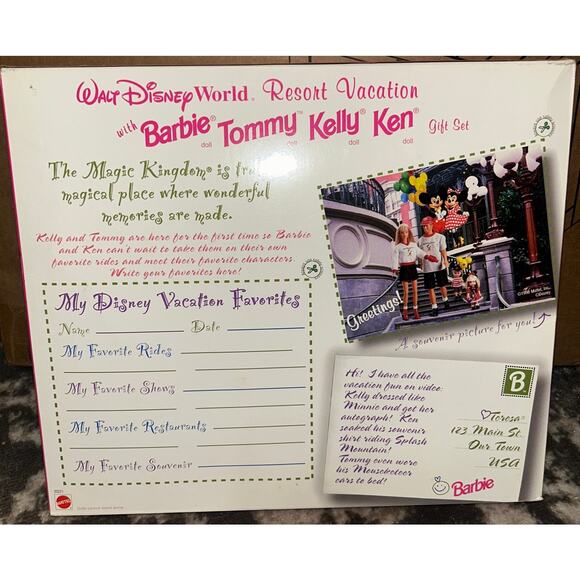 Walt Disney World® Resort Vacation
with Barbie® Tommy™ Kelly® Ken® Gift Set
doll doll doll doll
The Magic Kingdom® is
magical place where wonderful
memories are made.
Kelly and Tommy are here for the first time so Barbie
and Ken can't wait to take them on their own
favorite rides and meet their favorite characters.
Write your favorites here!
My Disney Vacation Favorites
Name Date
My Favorite Rides
My Favorite Shows
My Favorite Restaurants
My Favorite Souvenir
Greetings!
©1998 Mattel, Inc.
©Disney
A souvenir picture for you!
Hi! I have all the
vacation fun on video:
Kelly dressed like
Minnie and got her
autograph! Ken
soaked his souvenir
shirt riding Splash
Mountain!
Tommy even wore
his Mouseketeer
ears to bed!
Barbie
B
Teresa®
123 Main St.
Our Town
USA
MATTEL